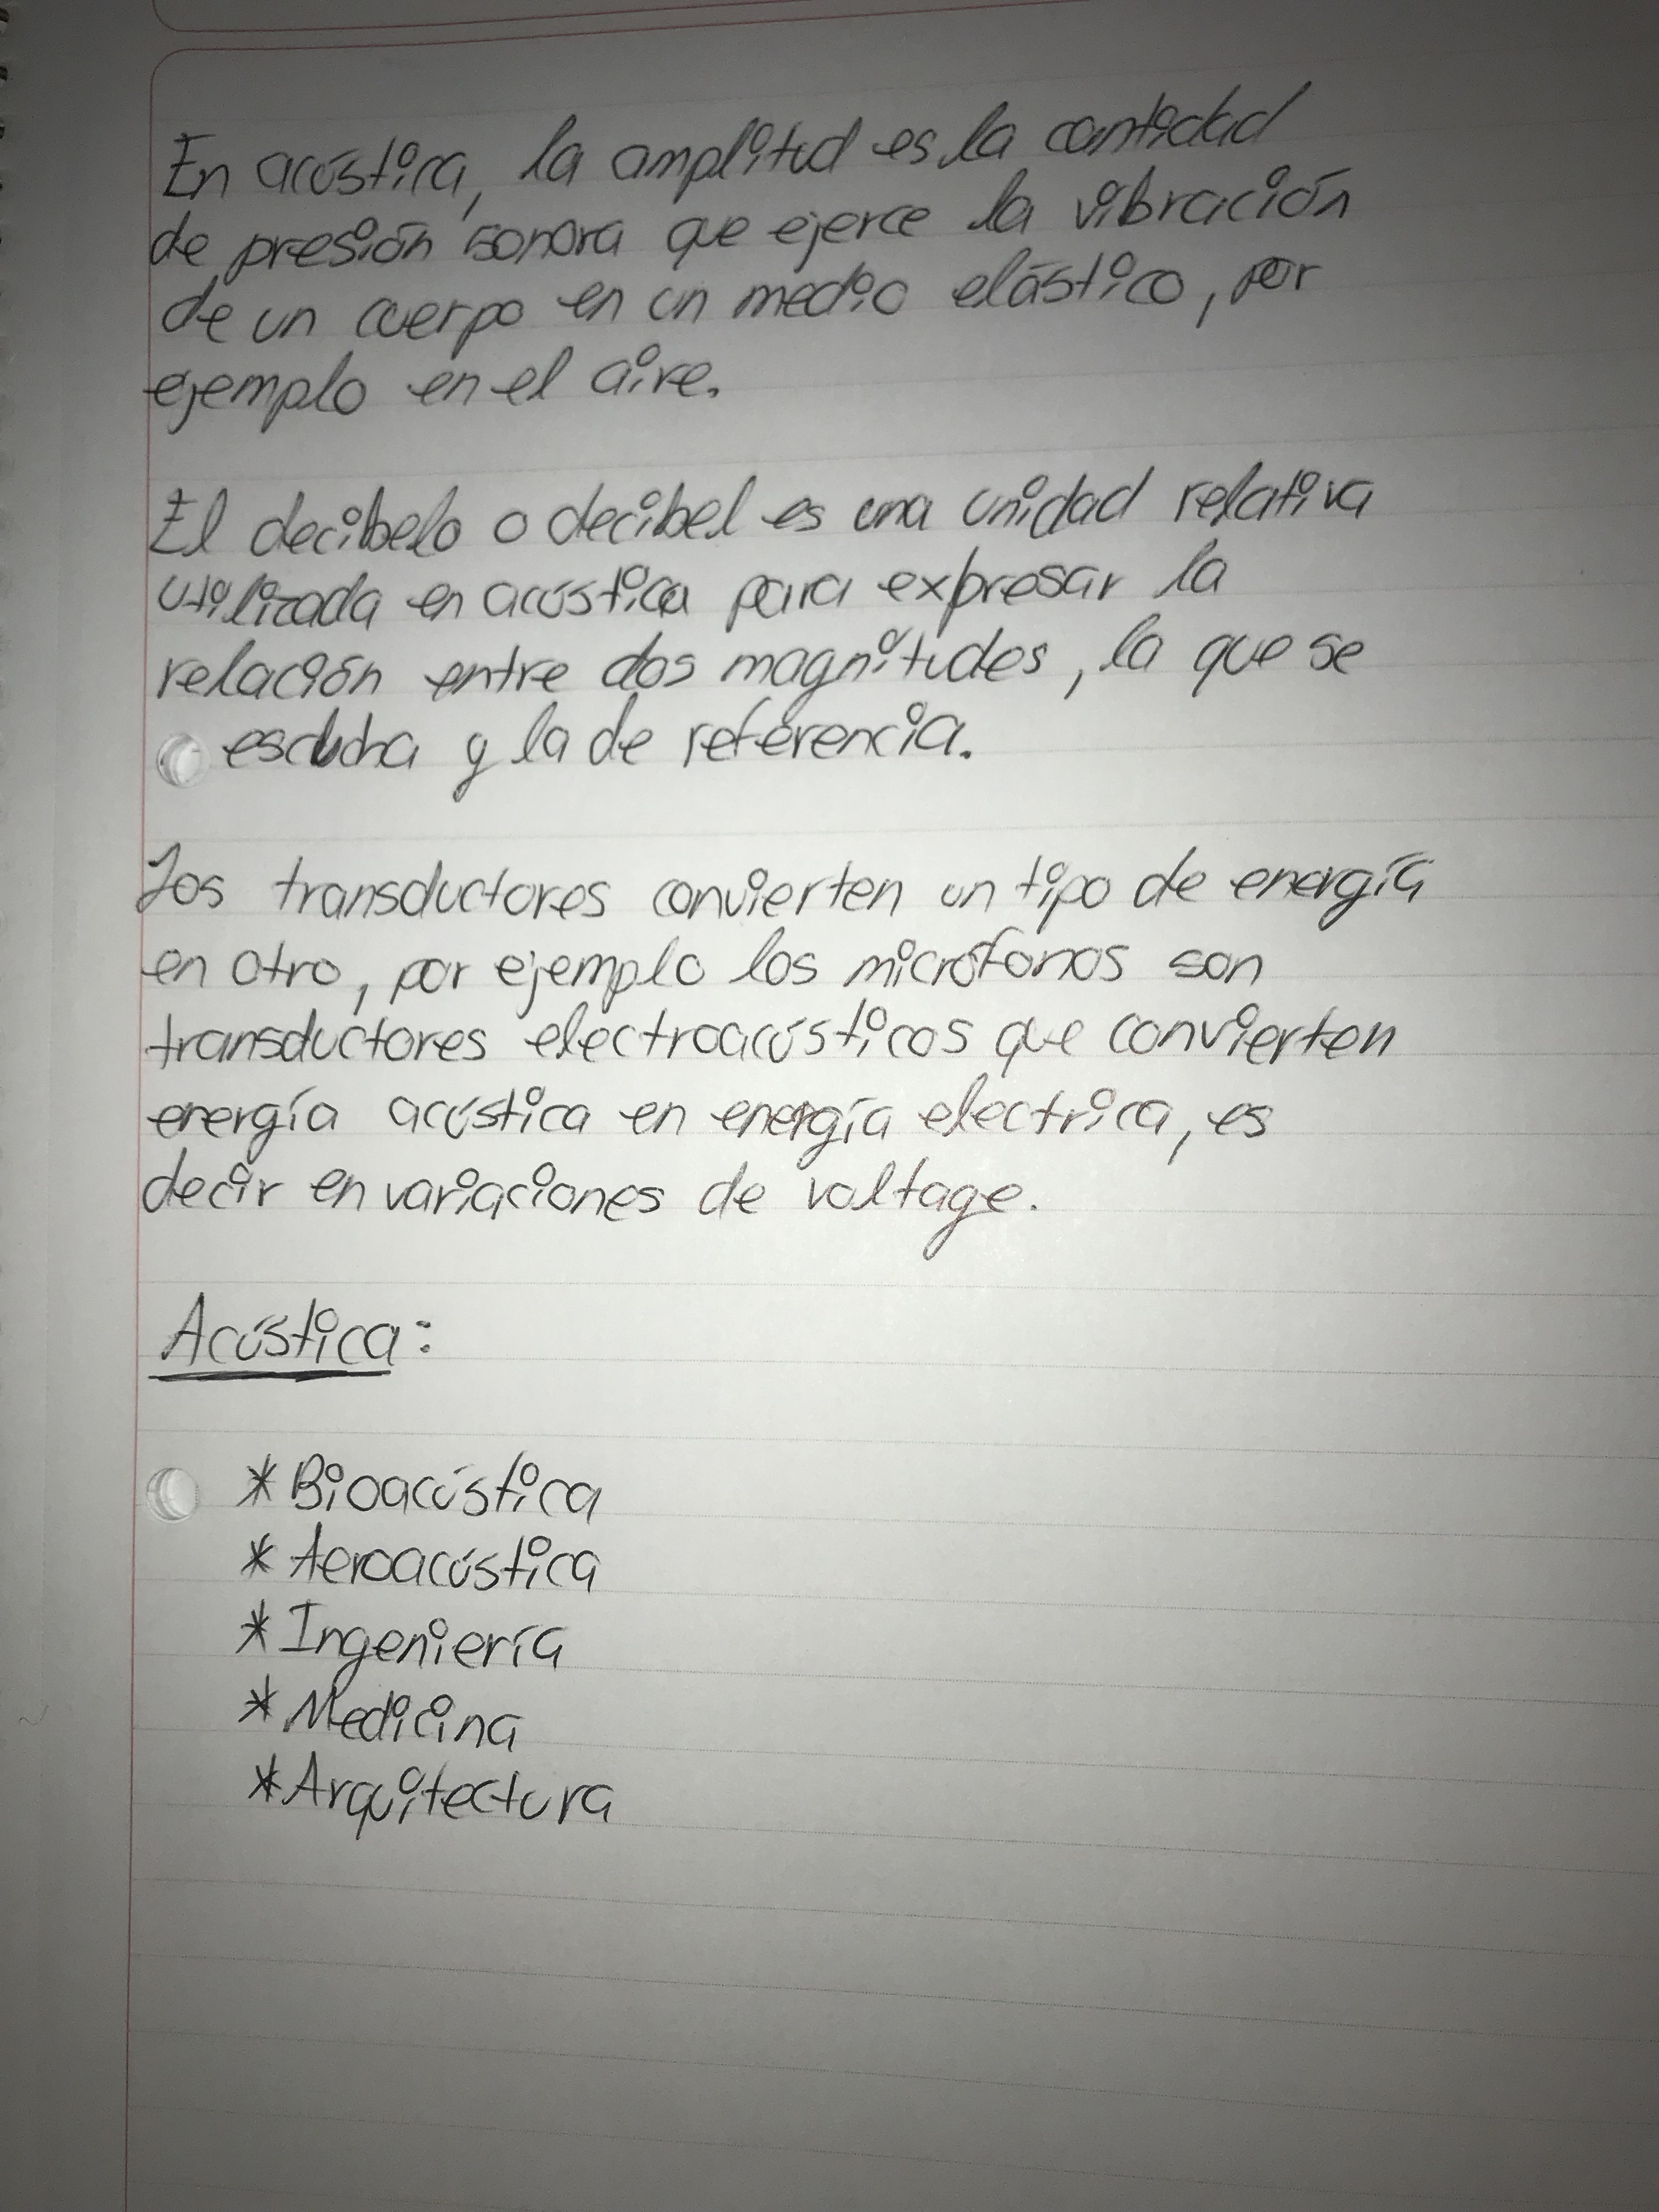 En acústica, la amplitud es la cantidad
de presión sonora que ejerce la vibración
de un cuerpo en un medio elástico, por
ejemplo en el aire.
El decibelo o decibel es una unidad relativa
utilizada en acústica para expresar la
relación entre dos magnitudes, la que se
escucha y la de referencia.
Los transductores convierten un tipo de energía
en otro, por ejemplo los micrófonos son
transductores electroacústicos que convierten
energía acústica en energía electrica, es
decir en variaciones de voltage.
Acústica:
* Bioacústica
* Aeroacústica
* Ingeniería
* Medicina
* Arquitectura